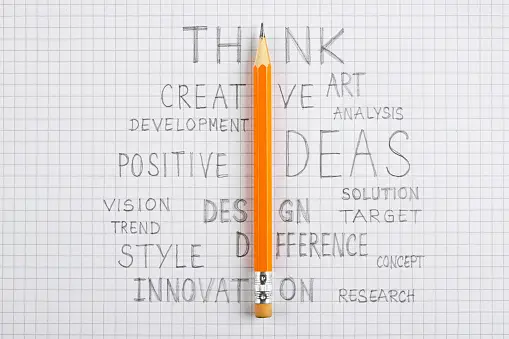 THINK
CREATIVE ART
ANALYSIS
DEVELOPMENT
POSITIVE IDEAS
SOLUTION
VISION DESIGN TARGET
TREND
STYLE DIFFERENCE
CONCEPT
INNOVATION RESEARCH